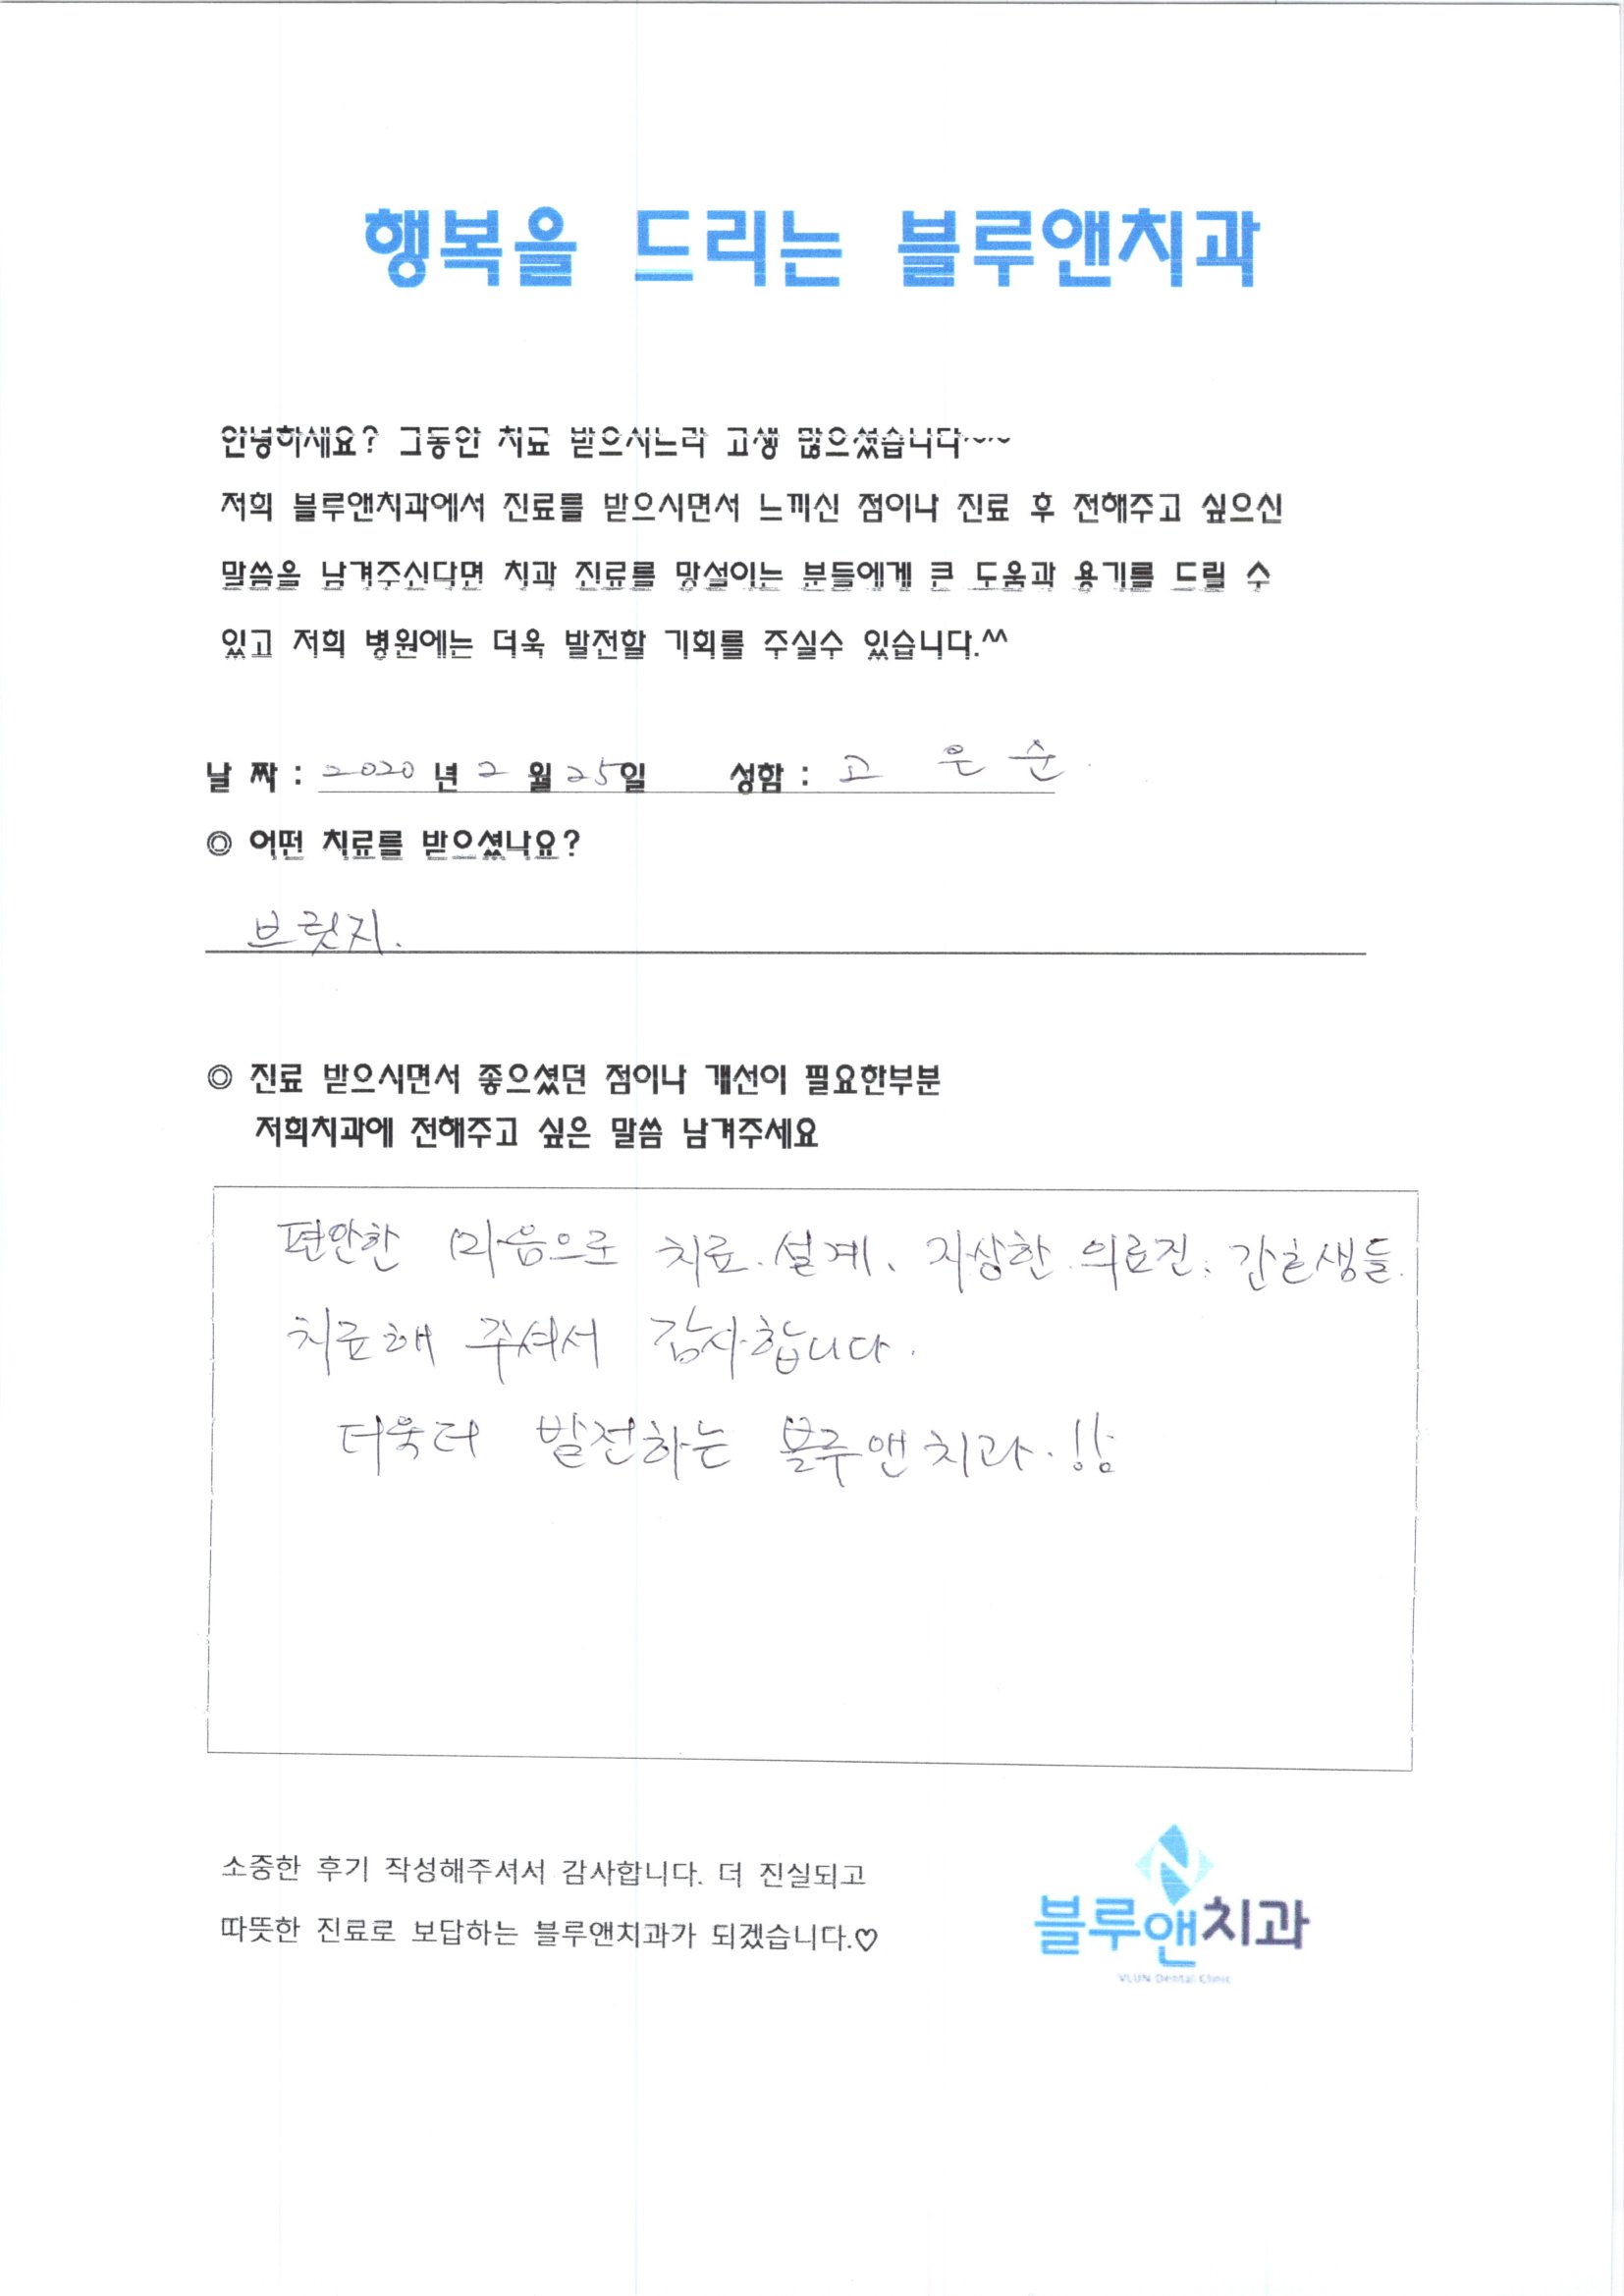 행복을 드리는 블루앤치과
안녕하세요? 그동안 치료 받으시느라 고생 많으셨습니다~~
저희 블루앤치과에서 진료를 받으시면서 느끼신 점이나 진료 후 전해주고 싶으신
말씀을 남겨주신다면 치과 진료를 망설이는 분들에게 큰 도움과 용기를 드릴 수
있고 저희 병원에는 더욱 발전할 기회를 주실수 있습니다.^^
날 짜 : 2020 년 2 월 25일 성함 : 고 은 순
◎ 어떤 치료를 받으셨나요?
브릿지.
◎ 진료 받으시면서 좋으셨던 점이나 개선이 필요한부분
저희치과에 전해주고 싶은 말씀 남겨주세요
편안한 마음으로 치료. 설계. 자상한 의료진. 간호생들.
치료해 주셔서 감사합니다.
더욱더 발전하는 블루앤치과.!!
소중한 후기 작성해주셔서 감사합니다. 더 진실되고
따뜻한 진료로 보답하는 블루앤치과가 되겠습니다.♡
블루앤치과
VLUN Dental Clinic